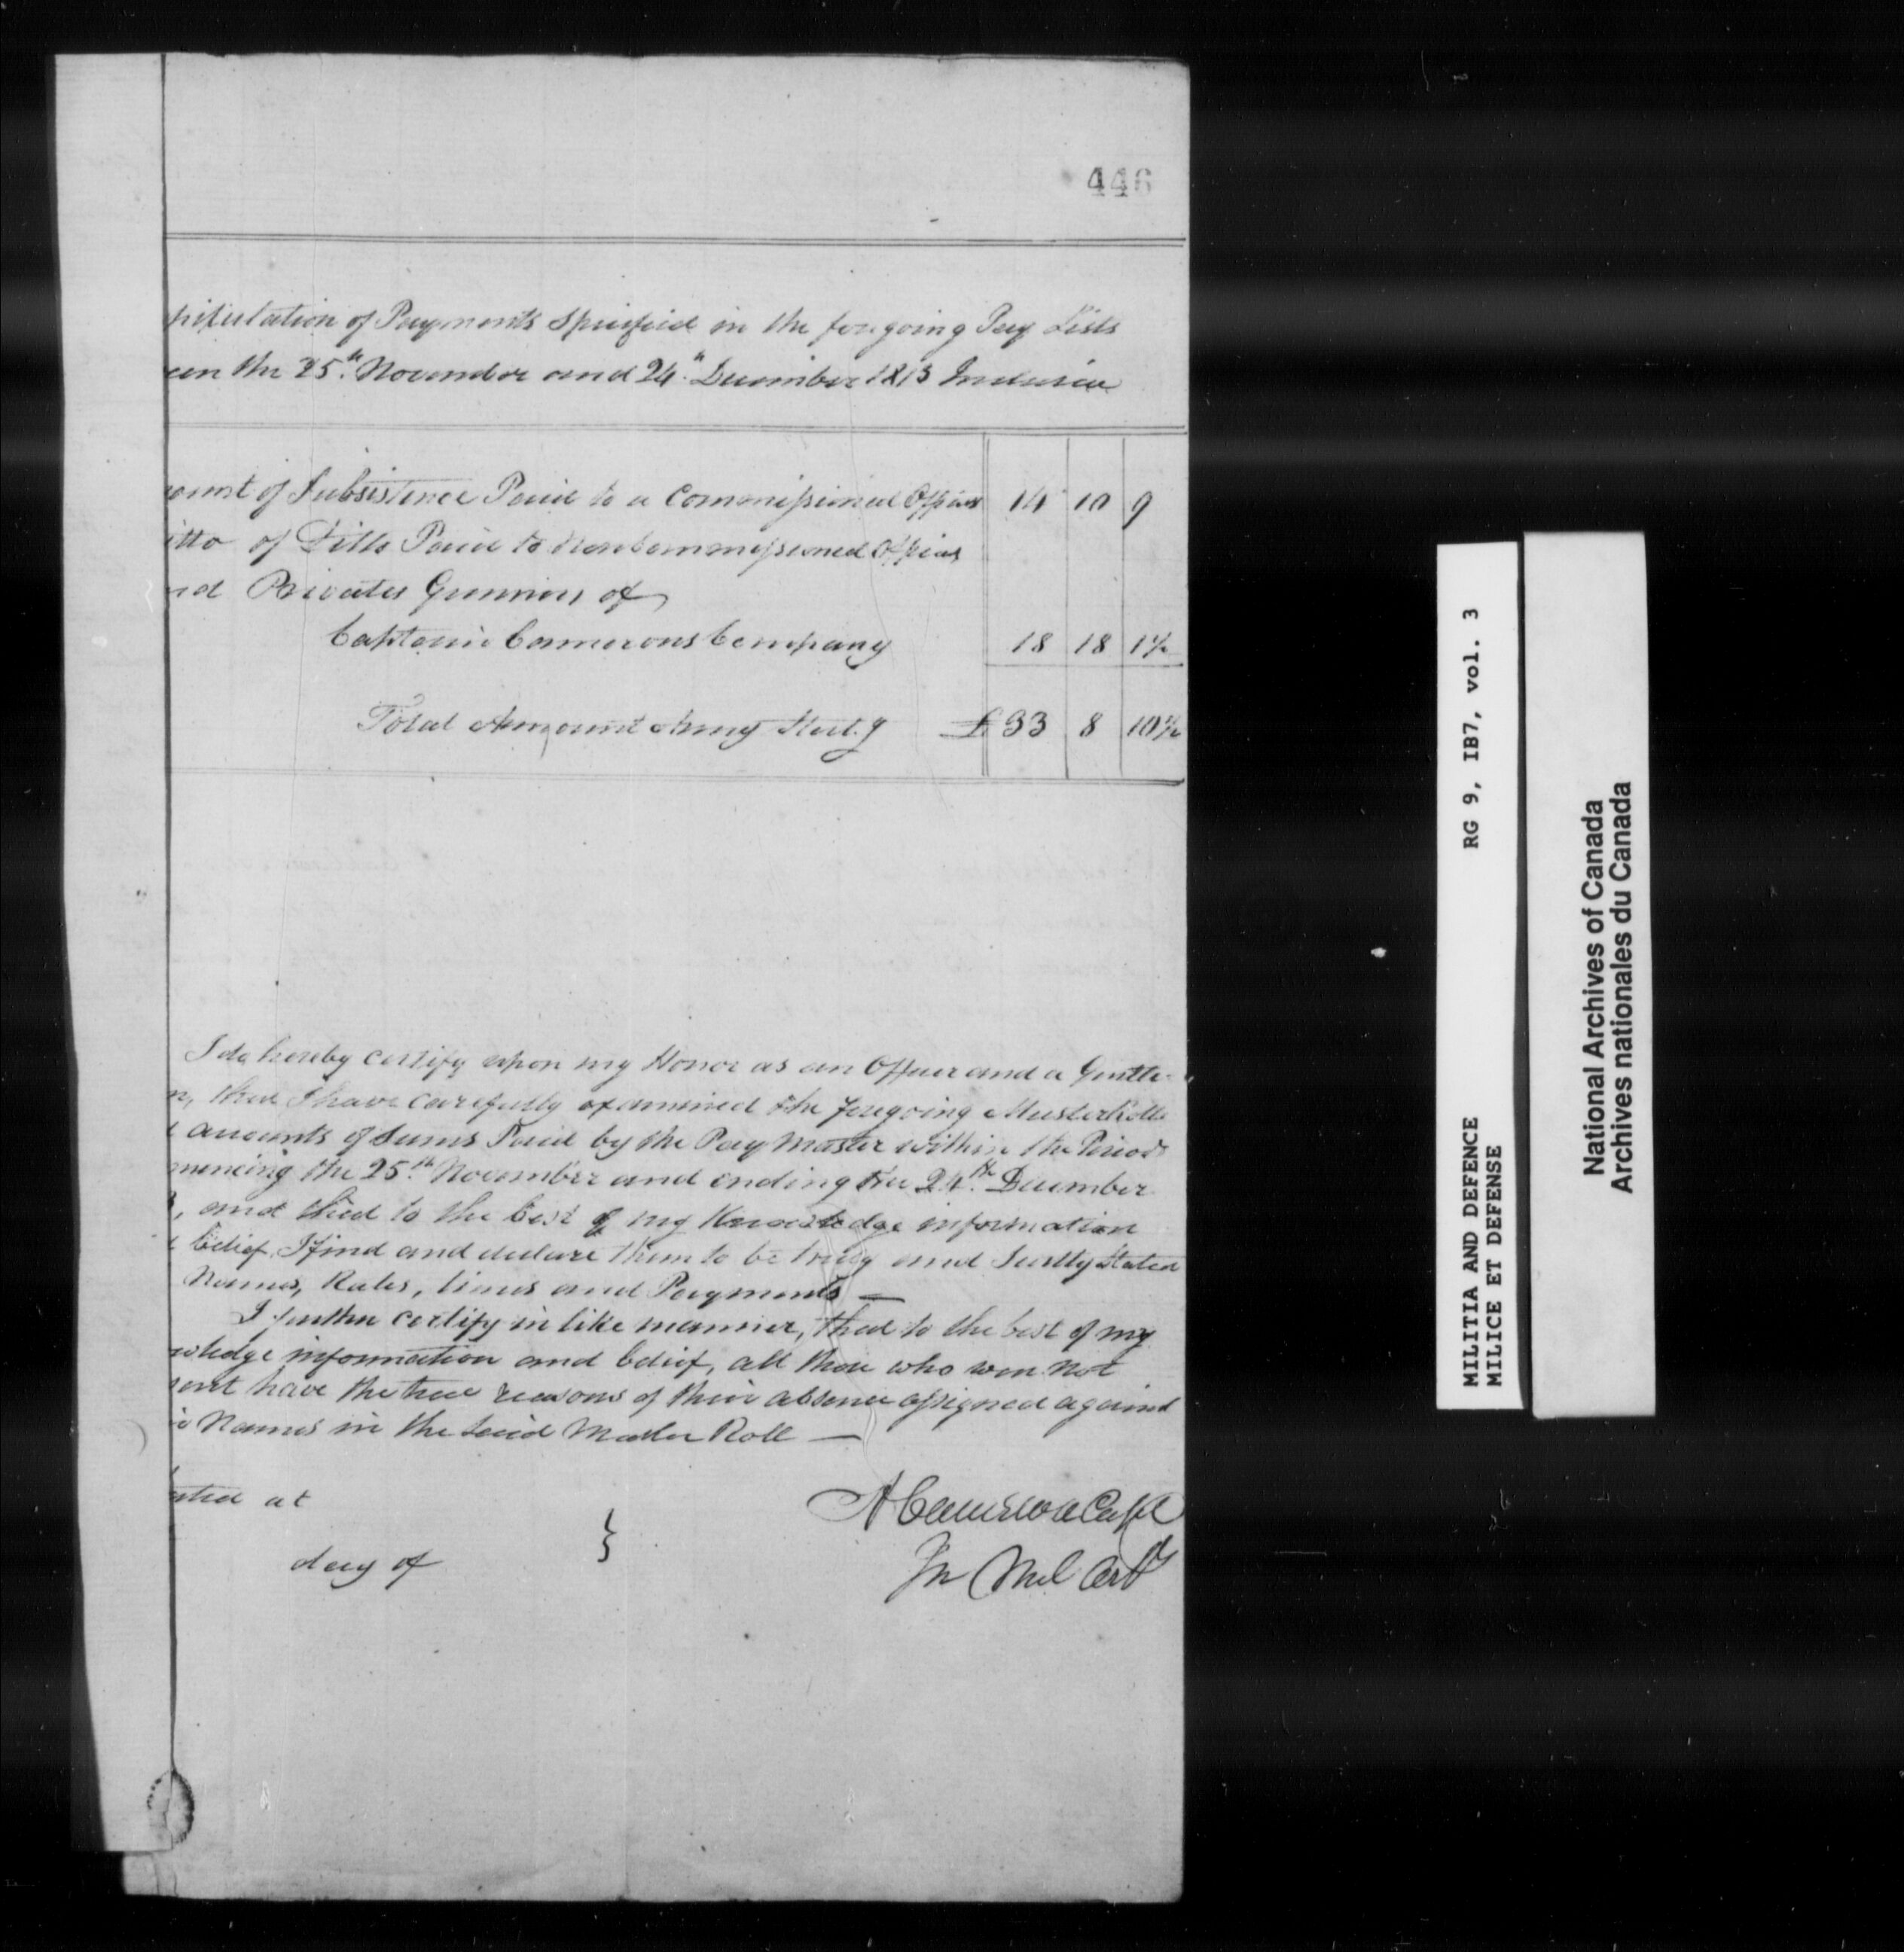 446
pitulation of Payments Specified in the foregoing Pay Lists
een the 25th November and 24th December 1813 Inclusive
ount of Subsistence Paid to a Commissioned Officer 14 10 9
itto of Ditto Paid to Non Commissioned Officers
nd Privates Gunners of
Captain Camerons Company 18 18 1½
Total Amount Army Sterlg £ 33 8 10½
I do hereby certify upon my Honor as an Officer and a Gentle-
n, that I have carefully examined the foregoing Muster Rolls
amounts of Sums Paid by the Pay Master within the Period
mencing the 25th November and ending the 24th December
, and that to the best of my Knowledge information
belief, I find and declare them to be truly and Justly Stated
Names, Rates, times and Payments —
I further certify in like manner, that to the best of my
wledge information and belief, all those who were not
sent have the true reasons of their absence assigned against
r Names in the said Muster Roll —
ated at
day of }
A Cameron Capt
In Mil Arty
MILITIA AND DEFENCE RG 9, IB7, vol. 3
MILICE ET DEFENSE
National Archives of Canada
Archives nationales du Canada